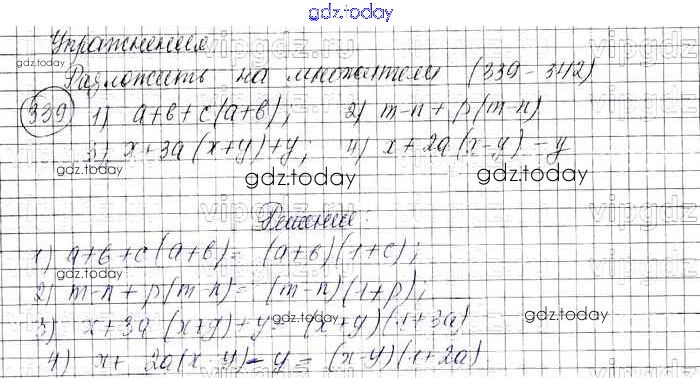 gdz.today
Упражнения
gdz.today
Разложить на множители (339-342)
339 1) a+b+c(a+b); 2) m-n+p(m-n)
3) x+3a(x+y)+y; 4) x+2a(x-y)-y
gdz.today gdz.today gdz.today
Решение:
1) a+b+c(a+b)=(a+b)(1+c);
gdz.today
2) m-n+p(m-n)=(m-n)(1+p);
gdz.today gdz.today
3) x+3a(x+y)+y=(x+y)(1+3a)
4) x+2a(x-y)-y=(x-y)(1+2a)